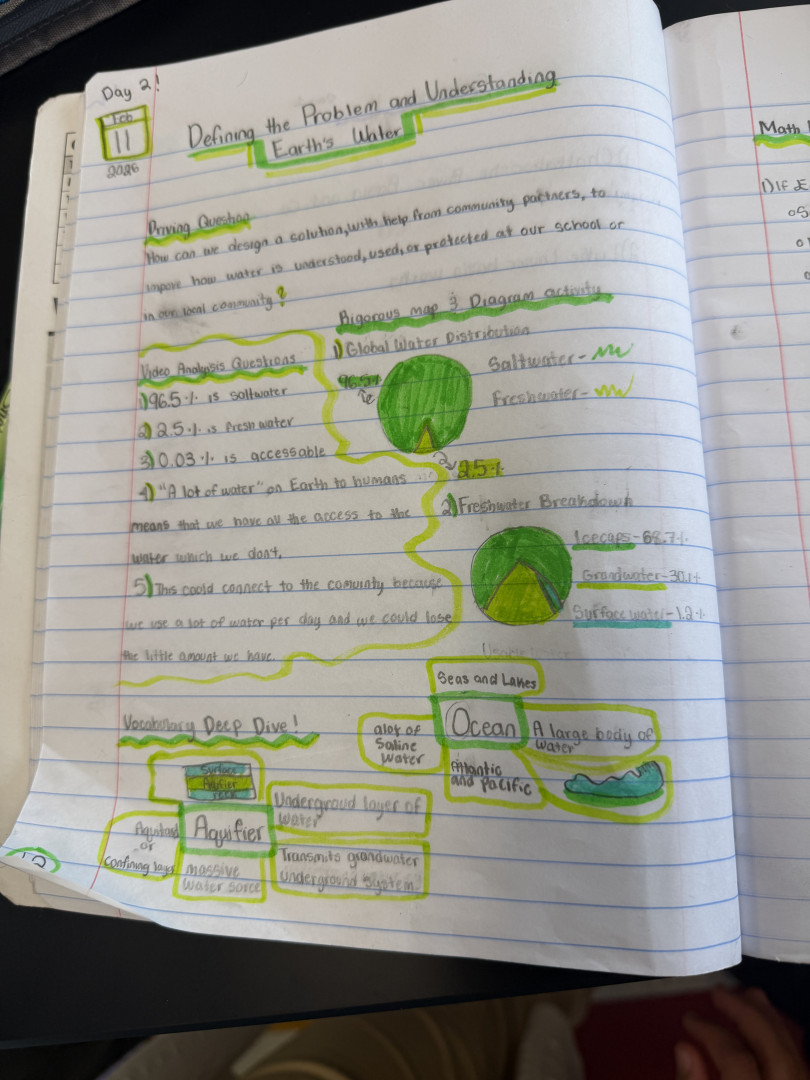 Day 2!
Feb
11
2026
Defining the Problem and Understanding
Earth's Water
Driving Question
How can we design a solution, with help from community partners, to
impove how water is understood, used, or protected at our school or
in our local community?
Video Analysis Questions
1) 96.5% is saltwater
2) 2.5% is fresh water
3) 0.03% is accessable
4) "A lot of water" on Earth to humans
means that we have all the access to the
water which we don't.
5) This could connect to the comuinty because
we use a lot of water per day and we could lose
the little amount we have.
Rigorous map & Diagram activity
1) Global Water Distribution
96.5%
Saltwater-
Freshwater-
2.5%
2) Freshwater Breakdown
Icecaps-68.7%
Grondwater-30.1%
Surface water-1.2%
Vocabulary Deep Dive!
Seas and Lakes
alot of
Saline
Water
Ocean
A large body of
water
Atlantic
and Pacific
Surface
Aquifier
rock
Aquitard
or
confining layer
Aquifier
Undergroud layer of
water
massive
water sorce
Transmits grandwater
underground system.
Math
1) If